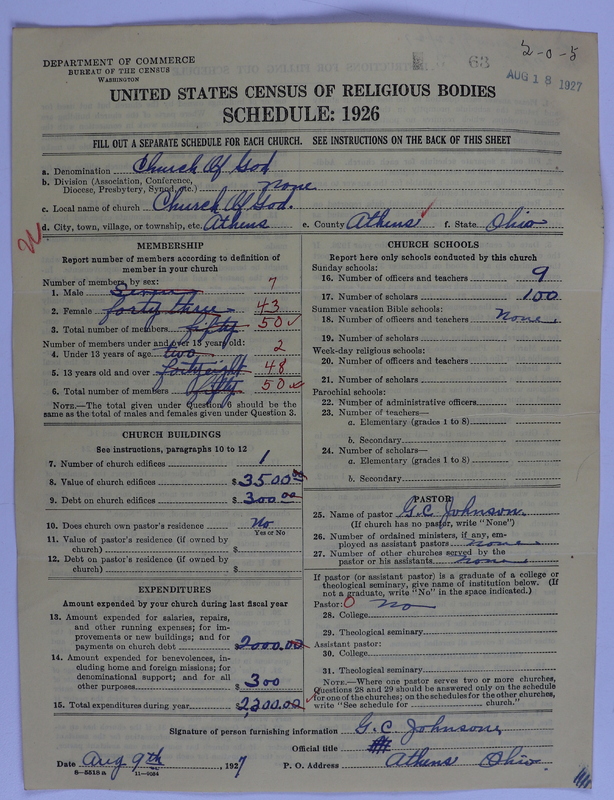 2-0-5
63
AUG 18 1927
DEPARTMENT OF COMMERCE
BUREAU OF THE CENSUS
WASHINGTON
UNITED STATES CENSUS OF RELIGIOUS BODIES
SCHEDULE: 1926
FILL OUT A SEPARATE SCHEDULE FOR EACH CHURCH. SEE INSTRUCTIONS ON THE BACK OF THIS SHEET
a. Denomination Church Of God
b. Division (Association, Conference,
Diocese, Presbytery, Synod, etc.) none
c. Local name of church Church Of God.
d. City, town, village, or township, etc. Athens e. County Athens f. State Ohio
MEMBERSHIP
Report number of members according to definition of
member in your church
Number of members, by sex:
1. Male Seven 7
2. Female forty three 43
3. Total number of members fifty 50
Number of members under and over 13 years old:
4. Under 13 years of age two 2
5. 13 years old and over forty eight 48
6. Total number of members fifty 50
NOTE.—The total given under Question 6 should be
same as the total of males and females given under Question 3.
CHURCH BUILDINGS
See instructions, paragraphs 10 to 12
7. Number of church edifices 1
8. Value of church edifices $3500 00
9. Debt on church edifices $300 00
10. Does church own pastor's residence No
Yes or No
11. Value of pastor's residence (if owned by
church) $
12. Debt on pastor's residence (if owned by
church) $
EXPENDITURES
Amount expended by your church during last fiscal year
13. Amount expended for salaries, repairs,
and other running expenses; for im-
provements or new buildings; and for
payments on church debt $2000.00
14. Amount expended for benevolences, in-
cluding home and foreign missions; for
denominational support; and for all
other purposes $300
15. Total expenditures during year $2,300.00
CHURCH SCHOOLS
Report here only schools conducted by this church
Sunday schools:
16. Number of officers and teachers 9
17. Number of scholars 100
Summer vacation Bible schools:
18. Number of officers and teachers None
19. Number of scholars
Week-day religious schools:
20. Number of officers and teachers
21. Number of scholars
Parochial schools:
22. Number of administrative officers
23. Number of teachers—
a. Elementary (grades 1 to 8)
b. Secondary
24. Number of scholars—
a. Elementary (grades 1 to 8)
b. Secondary
PASTOR
25. Name of pastor G. C. Johnson
(If church has no pastor, write "None")
26. Number of ordained ministers, if any, em-
ployed as assistant pastors none
27. Number of other churches served by the
pastor or his assistants none
If pastor (or assistant pastor) is a graduate of a college or
theological seminary, give name of institution below. (If
not a graduate, write "No" in the space indicated.)
Pastor: 0 no
28. College
29. Theological seminary
Assistant pastor:
30. College
31. Theological seminary
NOTE.—Where one pastor serves two or more churches,
Questions 28 and 29 should be answered only on the schedule
for one of the churches; on the schedules for the other churches,
write "See schedule for church."
Signature of person furnishing information G. C. Johnson,
Official title
Date Aug 9th, 1927 P. O. Address Athens Ohio.
8—5518 a 11—9034